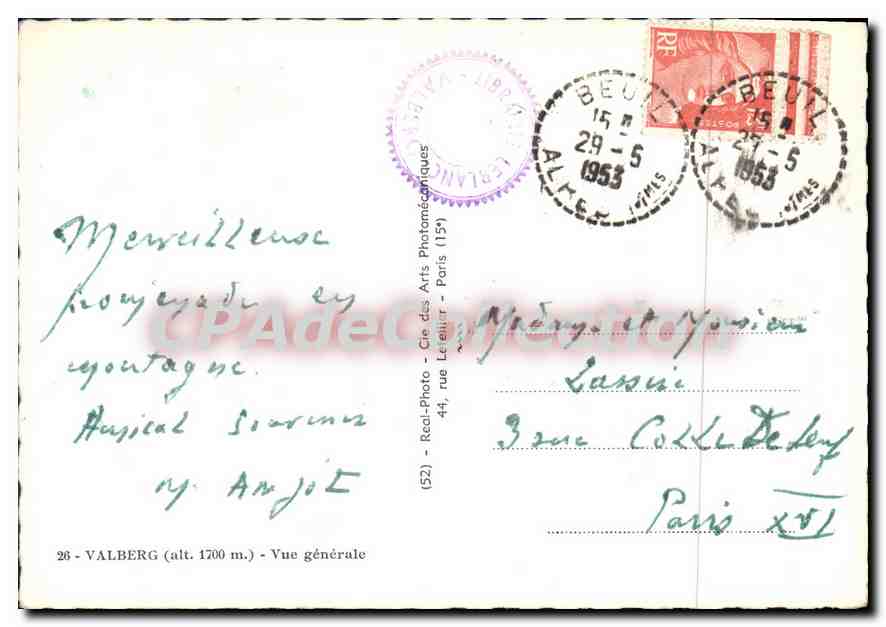 Merveilleuse
promenade en
montagne.
Amical Souvenir
M. Anjot
26 - VALBERG (alt. 1700 m.) - Vue générale
(52) - Real-Photo - Cie des Arts Photomécaniques
44, rue Letellier - Paris (15e)
LIBRAIRIE LEBLANC - VALBERG -
RF
POSTES
BEUIL
15
29-5
1953
ALPES MTMES
BEUIL
15
29-5
1953
ALPES MTMES
Madame et Monsieur
3 rue
Paris XVI
CPAdeCollection